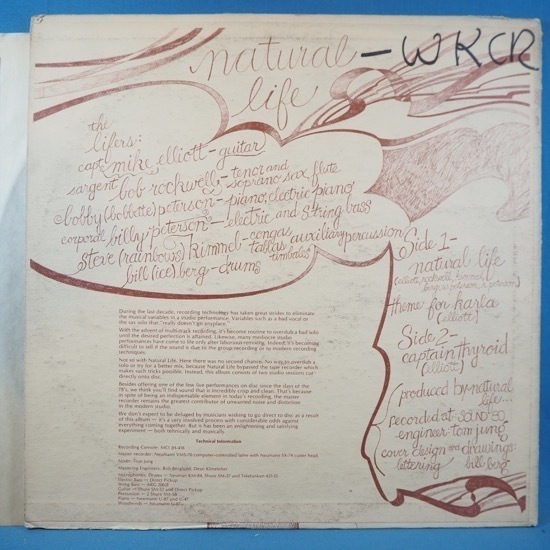 natural
life
—WKCR
the
lifers:
capt. mike elliott—guitar
sargent bob rockwell—tenor and
soprano sax, flute
bobby (bobbette) peterson—piano, electric piano
corporal billy peterson—electric and string bass
steve (rainbows) kimmel—congas
tablas auxiliary percussion
timbales
bill (ice) berg—drums
Side 1—
natural life
theme for karla
(elliott)
Side 2—
captain thyroid
(elliott)
produced by natural
life...
recorded at SOUND 80
engineer tom jung
cover design and drawings
lettering bill berg
During the last decade, recording technology has taken great strides to eliminate
the musical variables in a studio performance. Variables such as a bad vocal or
the sax solo that "really doesn't go anyplace."
With the advent of multi-track recording, it's become routine to overdub a bad solo
until the desired perfection is attained. Likewise, many mediocre studio
performances have come to life only after laborious remixing. Indeed it's becoming
difficult to tell if the sound is due to the group recording or to modern recording
techniques.
Not so with Natural Life. Here there was no second chance. No way to overdub a
solo or try for a better mix, because Natural Life bypassed the tape recorder which
makes such tricks possible. Instead, this album consists of two studio sessions cut
directly onto disc.
Besides offering one of the few live performances on disc since the days of the
78's, we think you'll find sound that is incredibly crisp and clean. That's because
in spite of being an indispensable element in today's recording, the master
recorder remains the greatest contributor of unwanted noise and distortion
in the modern studio.
We don't expect to be deluged by musicians wishing to go direct to disc as a result
of this album — it's a very involved process with considerable odds against
everything coming together. But it has been an enlightening and satisfying
experiment — both technically and musically.
Technical Information
Recording Console: MCI JH-416
Master recorder: Neumann VMS-70 computer-controlled lathe with Neumann SX-74 cutter head.
Mixer: Tom Jung
Mastering Engineers: Bob Berglund, Dean
Microphones: Drums —
Electric Bass — Direct Pickup
String Bass — AKG
Guitar — Shure SM-57 and Direct Pickup
Percussion — 2 Shure SM-58
Piano — Neumann U-87 and U-47
Woodwinds — Neumann U-47